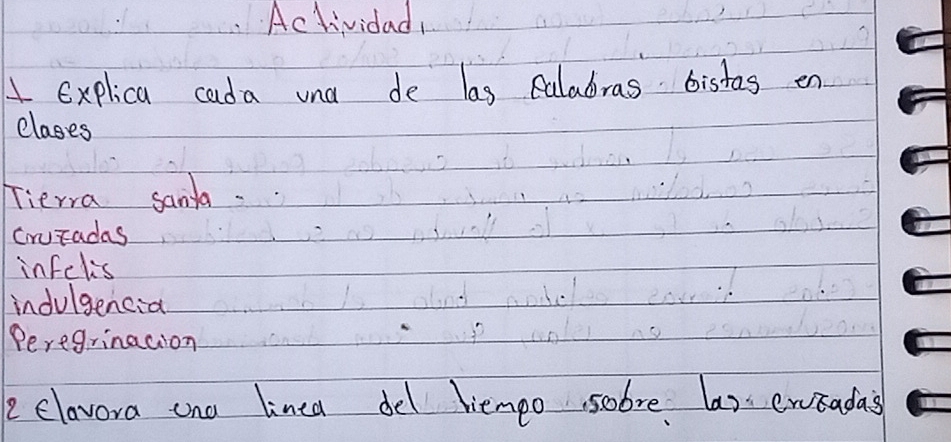 Actividad.
1 Explica cada una de las Palabras bistas en
Clases
Tierra santa :
Cruzadas
infelis
indulgencia
Peregrinacion
2 Elavora una linea del tiempo sobre las cruzadas